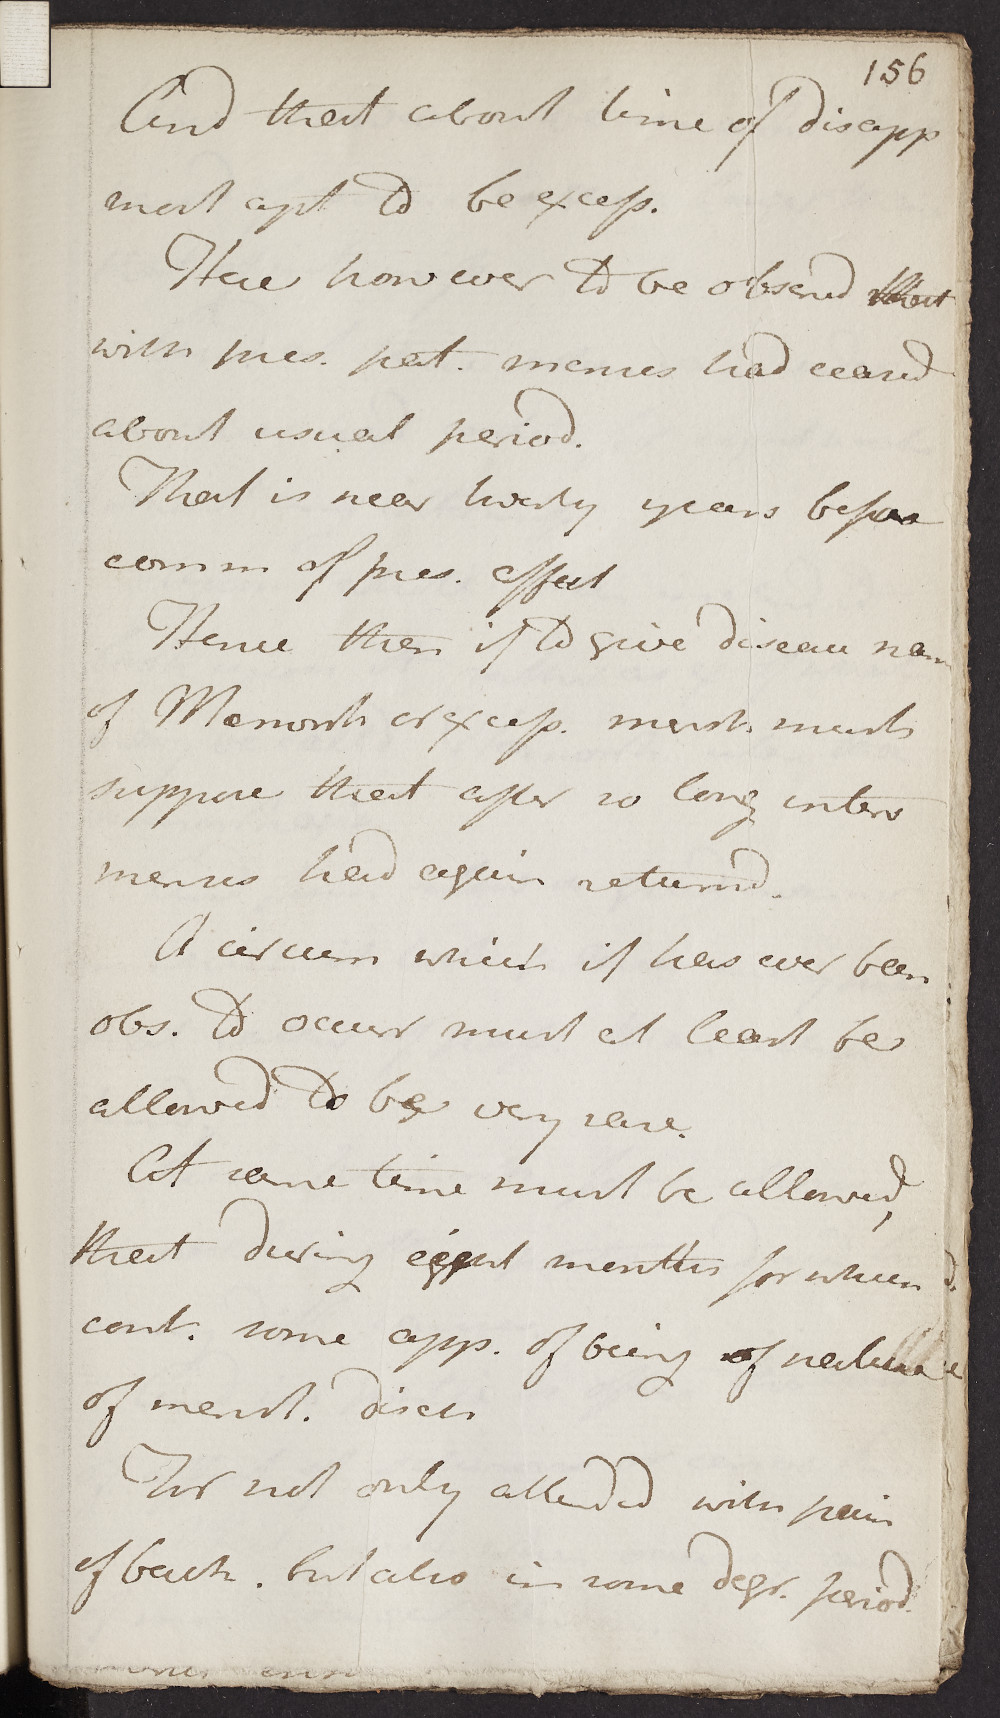 156
And that about time of disapp
most apt to be excess.
Here however to be observd that
with pres. pat. menses had ceased
about usual period.
That is near twenty years before
comm of pres. affect
Hence then if to give disease nam
of Menorrh or excess. menst. must
suppose that after so long interv
menses had again returnd.
A circum which if has ever been
obs. to occurr must at least be
allowed to be very rare.
At same time must be allowed,
that during eight months for which d.
cont. some app. of being of nature
of menst. disch
For not only attended with pain
of back. but also in some degr. period.